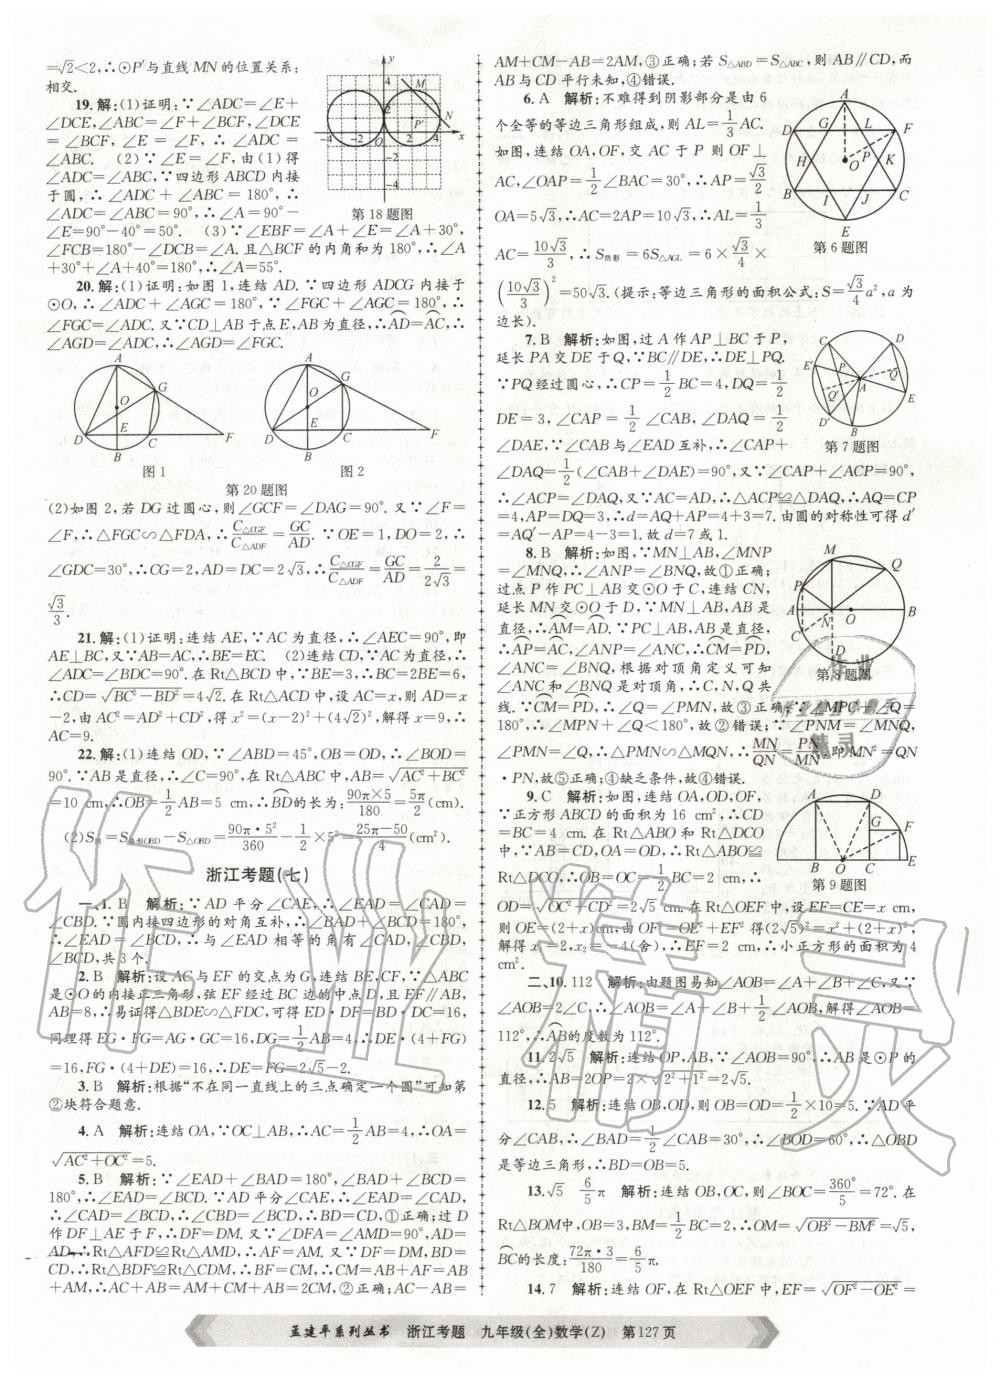 =√2<2,∴⊙P′与直线MN的位置关系:
相交.
19.解:(1)证明:∵∠ADC=∠E+
∠DCE,∠ABC=∠F+∠BCF,∠DCE
=∠BCF,∠E=∠F,∴∠ADC=
∠ABC. (2)∵∠E=∠F,由(1)得
∠ADC=∠ABC,∵四边形ABCD内接
于圆,∴∠ADC+∠ABC=180°,∴
∠ADC=∠ABC=90°,∴∠A=90°-
∠E=90°-40°=50°. (3)∵∠EBF=∠A+∠E=∠A+30°,
∠FCB=180°-∠DCB=∠A.且△BCF的内角和为180°,∴∠A
+30°+∠A+40°=180°,∴∠A=55°.
第18题图
20.解:(1)证明:如图1,连结AD.∵四边形ADCG内接于
⊙O,∴∠ADC+∠AGC=180°,∵∠FGC+∠AGC=180°,∴
∠FGC=∠ADC.又∵CD⊥AB于点E,AB为直径,∴AD=AC,∴
∠AGD=∠ADC,∴∠AGD=∠FGC.
图1 图2
第20题图
(2)如图2,若DG过圆心,则∠GCF=∠DAG=90°.又∵∠F=
∠F,∴△FGC∽△FDA,∴C△CGF/C△ADF=GC/AD.∵OE=1,DO=2,∴
∠GDC=30°,∴CG=2,AD=DC=2√3,∴C△CGF/C△ADF=GC/AD=2/2√3=
√3/3.
21.解:(1)证明:连结AE,∵AC为直径,∴∠AEC=90°,即
AE⊥BC,又∵AB=AC,∴BE=EC. (2)连结CD,∵AC为直径,∴
∠ADC=∠BDC=90°.在Rt△BCD中,∵BE=3,∴BC=2BE=6,
∴CD=√(BC²-BD²)=4√2.在Rt△ACD中,设AC=x,则AD=x
-2,由AC²=AD²+CD²,得x²=(x-2)²+(4√2)²,解得x=9,∴
AC=9.
22.解:(1)连结OD,∵∠ABD=45°,OB=OD,∴∠BOD=
90°.∵AB是直径,∴∠C=90°,在Rt△ABC中,AB=√(AC²+BC²)
=10 cm,∴OB=1/2AB=5 cm,∴BD的长为:90π×5/180=5π/2(cm).
(2)S阴=S扇形OBD-S△OBD=90π·5²/360-1/2×5²=25π-50/4(cm²).
浙江考题(七)
一、1.B 解析:∵AD平分∠CAE,∴∠EAD=∠CAD=
∠CBD.∵圆内接四边形的对角互补,∴∠BAD+∠BCD=180°,
∴∠EAD=∠BCD,∴与∠EAD相等的角有∠CAD,∠CBD,
∠BCD,共3个.
2.B 解析:设AC与EF的交点为G,连结BE,CF,∵△ABC
是⊙O的内接正三角形,弦EF经过BC边的中点D,且EF∥AB,
AB=8,∴易证得△BDE∽△FDC,可得ED·DF=BD·DC=16,
同理得EG·FG=AG·GC=16,DG=1/2AB=4,∴DE·(4+FG)
=16,FG·(4+DE)=16,∴DE=FG=2√5-2.
3.B 解析:根据“不在同一直线上的三点确定一个圆”可知第
②块符合题意.
4.A 解析:连结OA,∵OC⊥AB,∴AC=1/2AB=4,∴OA=
√(AC²+OC²)=5.
5.B 解析:∵∠EAD+∠BAD=180°,∠BAD+∠BCD=
180°,∴∠EAD=∠BCD.∵AD平分∠CAE,∴∠EAD=∠CAD,
∴∠CAD=∠BCD,∴∠CBD=∠BCD,∴BD=CD,①正确;过D
作DF⊥AE于F,∴DF=DM.又∵∠DFA=∠AMD=90°,AD=
AD,∴Rt△AFD≌Rt△AMD,∴AF=AM.又∵DF=DM,BD=
CD,∴Rt△BDF≌Rt△CDM,∴BF=CM,∴CM=AB+AF=AB
+AM,∴AC+AB=AM+CM+AB=2CM,②正确;AC-AB=
AM+CM-AB=2AM,③正确;若S△ABD=S△ABC,则AB∥CD,而
AB与CD平行未知,④错误.
6.A 解析:不难得到阴影部分是由6
个全等的等边三角形组成,则AL=1/3AC.
如图,连结OA,OF,交AC于P则OF⊥
AC,∠OAP=1/2∠BAC=30°,∴AP=√3/2
OA=5√3,∴AC=2AP=10√3,∴AL=1/3
AC=10√3/3,∴S阴影=6S△AGL=6×√3/4×
(10√3/3)²=50√3.(提示:等边三角形的面积公式:S=√3/4a²,a为
边长).
第6题图
7.B 解析:如图,过A作AP⊥BC于P,
延长PA交DE于Q,∵BC∥DE,∴DE⊥PQ.
∵PQ经过圆心,∴CP=1/2BC=4,DQ=1/2
DE=3,∠CAP=1/2∠CAB,∠DAQ=1/2
∠DAE,∵∠CAB与∠EAD互补,∴∠CAP+
∠DAQ=1/2(∠CAB+∠DAE)=90°,又∵∠CAP+∠ACP=90°,
∴∠ACP=∠DAQ,又∵AC=AD,∴△ACP≌△DAQ,∴AQ=CP
=4,AP=DQ=3,∴d=AQ+AP=4+3=7.由圆的对称性可得d′
=AQ′-AP=4-3=1.故d=7或1.
第7题图
8.B 解析:如图,∵MN⊥AB,∠MNP
=∠MNQ,∴∠ANP=∠BNQ,故①正确;
过点P作PC⊥AB交⊙O于C,连结CN,
延长MN交⊙O于D,∵MN⊥AB,AB是
直径,∴AM=AD.∵PC⊥AB,AB是直径,
∴AP=AC,∠ANP=∠ANC,∴CM=PD,
∠ANC和∠BNQ是对顶角,∴C,N,Q共
线.∵CM=PD,∴∠Q=∠PMN,故③正确;∵∠MPC+∠Q=
180°,∴∠MPN+∠Q<180°,故②错误;∵∠PNM=∠MNQ,
∠PMN=∠Q,∴△PMN∽△MQN,∴MN/QN=PN/MN即MN²=QN
·PN,故⑤正确;④缺乏条件,故④错误.
第8题图
9.C 解析:如图,连结OA,OD,OF,
∵正方形ABCD的面积为16 cm²,∴CD
=BC=4 cm.在Rt△ABO和Rt△DCO
中,∵AB=CD,OA=OD,∴Rt△ABO≌
Rt△DCO,∴OB=OC=1/2BC=2 cm,∴
OD=√(OC²+CD²)=2√5 cm.在Rt△OEF中,设EF=CE=x cm,
则OE=(2+x)cm,由OF²=OE²+EF²得(2√5)²=x²+(2+x)²,
解得x₁=2,x₂=-4(舍),∴EF=2 cm,∴小正方形的面积为4
cm².
第9题图
二、10.112 解析:由题图易知∠AOB=∠A+∠B+∠C,又∵
∠AOB=2∠C,∴∠AOB=∠A+∠B+1/2∠AOB,解得∠AOB=
112°,∴AB的度数为112°.
11.2√5 解析:连结OP,AB,∵∠AOB=90°,∴AB是⊙P的
直径,∴AB=2OP=2×√(2²+1²)=2√5.
12.5 解析:连结OB,OD,则OB=OD=1/2×10=5.∵AD平
分∠CAB,∴∠BAD=1/2∠CAB=30°,∴∠BOD=60°,∴△OBD
是等边三角形,∴BD=OB=5.
13.√5 6/5π 解析:连结OB,OC,则∠BOC=360°/5=72°.在
Rt△BOM中,OB=3,BM=1/2BC=2,∴OM=√(OB²-BM²)=√5,
BC的长度:72π·3/180=6/5π.
14.7 解析:连结OF,在Rt△OEF中,EF=√(OF²-OE²)=
孟建平系列丛书 浙江考题 九年级(全)数学(Z) 第127页